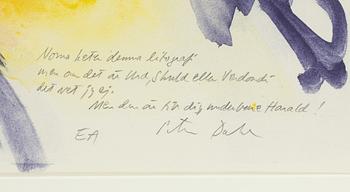 Norna heter denna litografi
men om det är Urd, Skuld eller Verdandi
det vet jag ej.
Men den är för dig underbare Harald!
EA Peter Dahl